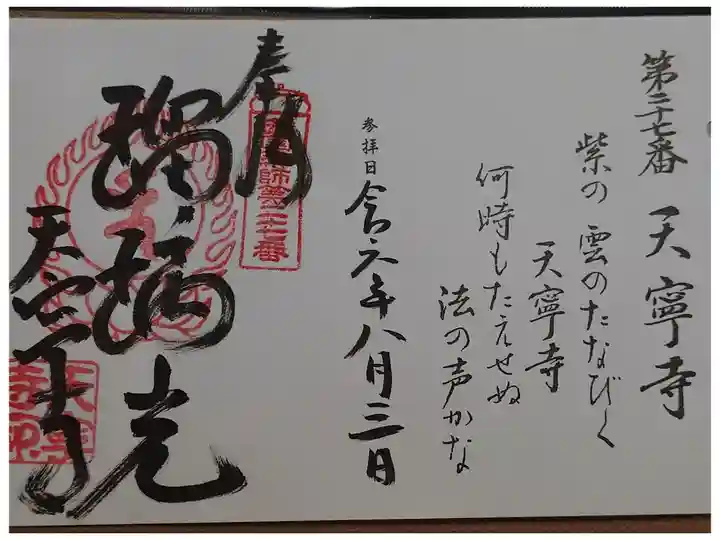 第二十七番 天寧寺
紫の雲のたなびく
天寧寺
何時もたえせぬ
法の声かな
参拝日 令六年八月三日
奉拝
瑠璃光
天寧寺